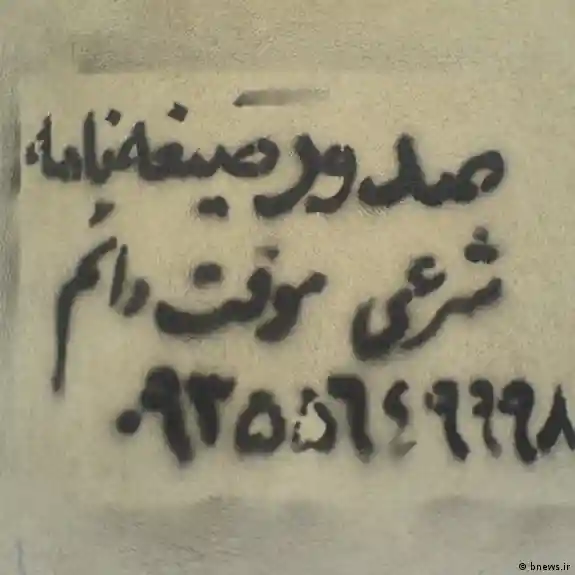 صدور صیغه نامه
شرعی موقت دائم
bnews.ir